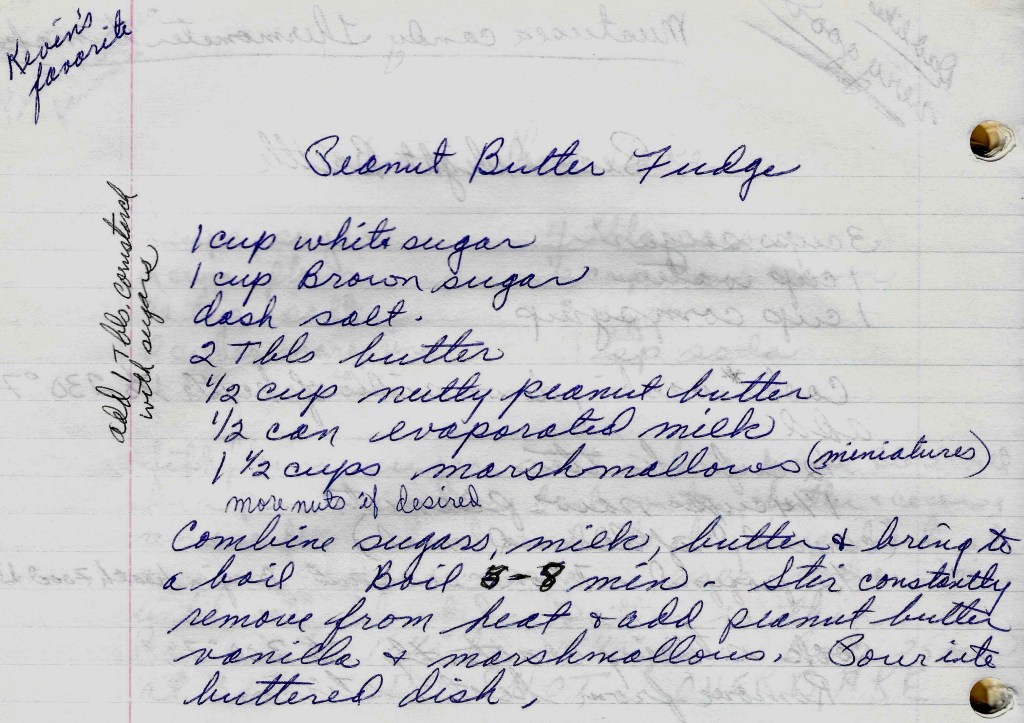 Kevin's
favorite
Peanut Butter Fudge
add 1 Tbls. cornstarch
with sugars
1 cup white sugar
1 cup Brown sugar
dash salt.
2 Tbls butter
1/2 cup nutty peanut butter
1/2 can evaporated milk
1 1/2 cups marshmallows (miniatures)
more nuts if desired
Combine sugars, milk, butter & bring to
a boil Boil 5-8 min - Stir constantly
remove from heat & add peanut butter
vanilla & marshmallows. Pour into
buttered dish,